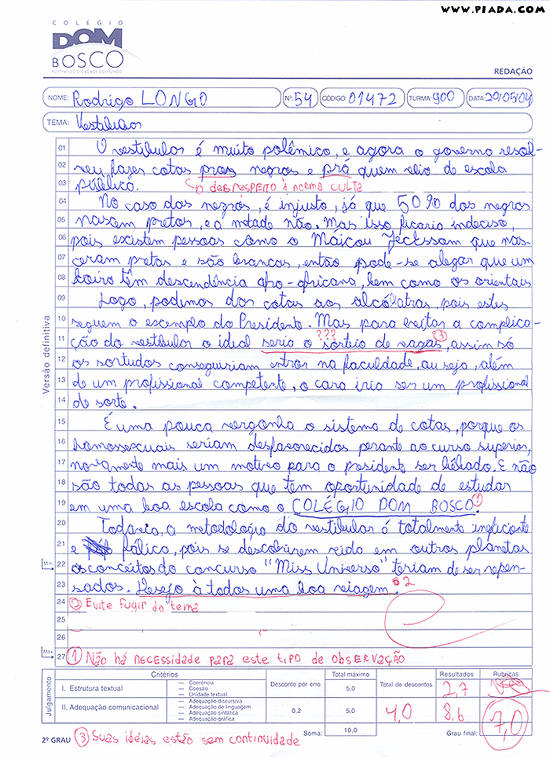 www.PIADA.com
COLÉGIO
DOM
BOSCO
REDAÇÃO
NOME: Rodrigo LONGO Nº 54 CÓDIGO: 01472 TURMA: 900 DATA: 29/05/04
TEMA: Vestibulas
01 O vestibulos é muito polêmico, e agora o governo resol-
02 veu fazer cotas pros negros e prá quem veio de escola
03 pública. DESRESPEITO À NORMA CULTA
04 No caso dos negros, é injusto, já que 50% dos negros
05 nascem pretos, e a mtade não. Mas isso ficaria indeciso,
06 pois existem pessoas como o Máicou Jeckssam que nas-
07 ceram pretas e são brancas, então pode-se alegar que um
08 loiro têm descendência afro-africana, bem como os orientais.
09 Logo, podemos dar cotas aos alcoólatras, pois estes
10 seguem o exemplo do Presidente. Mas para evitar a complica-
???
11 ção do vestibulor o ideal seria o sorteio de vagas, assim só
12 os sortudos conseguiriam entrar na faculdade, ou seja, além
13 de um profissional competente, o cara iria ser um profissional
14 de sorte.
15 É uma pouca vergonha o sistema de cotas, porque os
16 homossexuais seriam desfavorecidos perante ao curso superior,
17 novamente mais um motivo para o presidente ser bêbado. E não
18 são todas as pessoas que têm oportunidade de estudar
19 em uma boa escola como o COLÉGIO DOM BOSCO!
20 Todavia, a metodologia do vestibular é totalmente ineficiente
21 e fálico, pois se descobrirem vida em outros planetas
Min. 22 os conceitos do concurso "Miss Universo" teriam de ser repen-
23 sados. Desejo à todos uma boa viagem. 2
24 2 Evite fugir do tema
25
26
Máx. 27 1 Não há necessidade para este tipo de observação
Versão definitiva
Julgamento
Critérios Desconto por erro Total máximo Total de descontos Resultados Rubricas
I. Estrutura textual — Coerência — Coesão — Unidade textual 5,0 2,7
II. Adequação comunicacional — Adequação discursiva — Adequação de linguagem — Adequação sintática — Adequação gráfica 0,2 5,0 4,0 8,6
Soma: 10,0 Grau final: 7,0
2º GRAU 3 Suas idéias estão sem continuidade